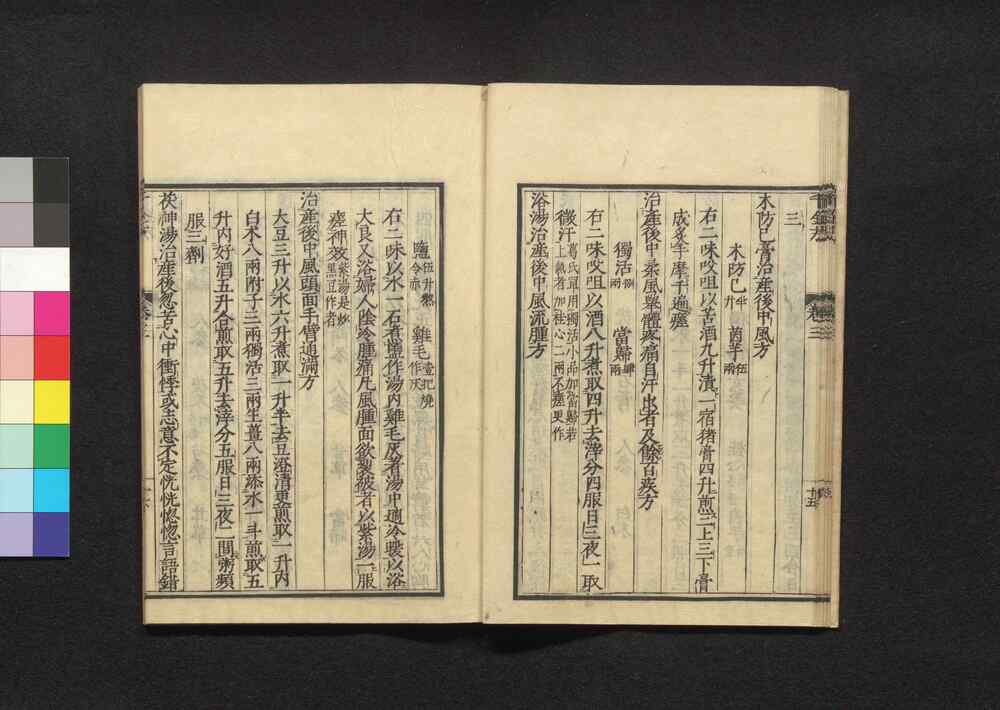 三
木防已膏治產後中風方
木防已半升 茵芋伍兩
右二味㕮咀以苦酒九升漬一宿猪膏四升煎三上三下膏
成炙手摩千遍瘥
治產後中柔風舉體疼痛自汗出者及餘百疾方
獨活捌兩 當歸肆兩
右二味㕮咀以酒八升煮取四升去滓分四服日三夜一取
微汗葛氏單用獨活小品加當歸若
上氣者加桂心二兩不瘥更作
浴湯治產後中風流腫方
鹽伍升熬
令赤 雞毛壹把燒
作灰
右二味以水一石煮鹽作湯內雞毛灰著湯中適冷暖以浴
大良又浴婦人陰冷腫痛凡風腫面欲裂破者以紫湯一服
瘥神效紫湯是炒
黑豆作者
治產後中風頭面手臂通滿方
大豆三升以水六升煮取一升半去豆澄清更煎取一升內
白朮八兩附子三兩獨活三兩生薑八兩添水一斗煎取五
升內好酒五升合煎取五升去滓分五服日三夜二間粥頻
服三劑
茯神湯治產後忽苦心中衝悸或志意不定恍恍惚惚言語錯